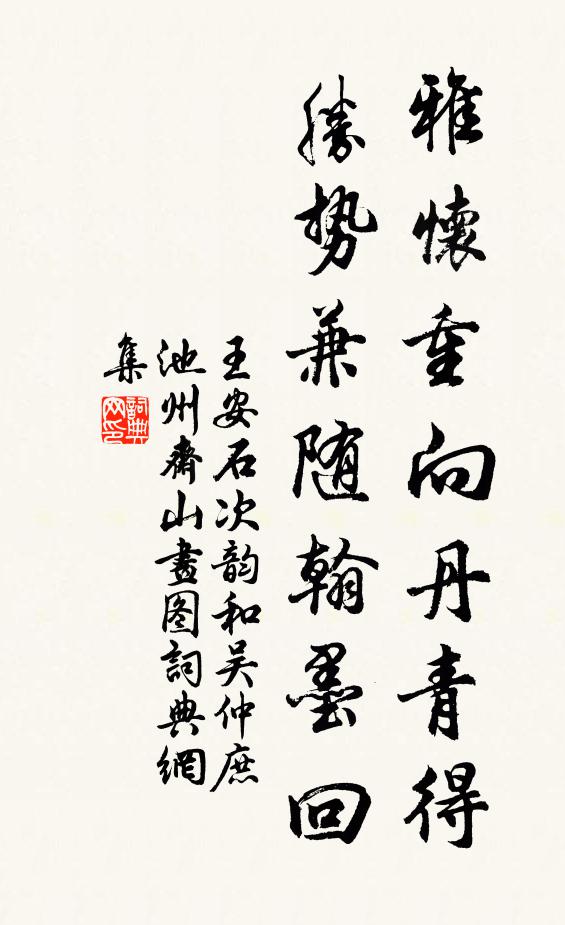 雅懷重向丹青得
勝势兼随翰墨回
王安石次韵和吴仲庶
池州齊山畫图詞典網
集
詞典
网印